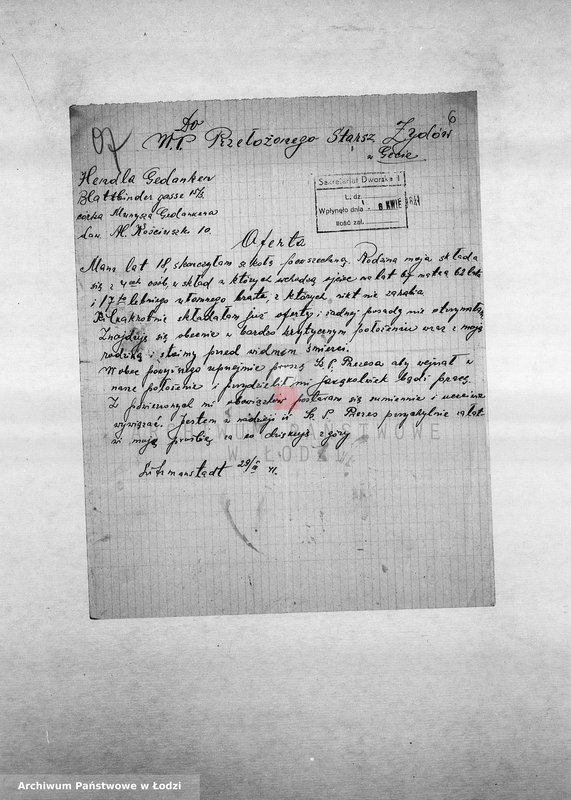 6
Do
W.P. Przełożonego Starsz. Żydów
w Gecie
Hendla Gedanken
Blattbinder gasse 15/3
córka Moryca Gedankena
zam. z Al. Kościuszki 10
Sekretariat Dworska 1
L. dz.
Wpłynęło dnia 8 KWIE 1941
Ilość zał.
Oferta
Mam lat 18, skończyłam szkołę powszechną. Rodzina moja składa
się z 4-ech osób, w skład których wchodzą ojciec lat 67 matka 62 lata
i 17to letniego brata, z których nikt nie zarabia.
Kilkakrotnie składałam już oferty i żadnej posady nie otrzymałam
Znajduję się obecnie w bardzo krytycznym położeniu wraz z moją
rodziną i stoimy przed widmem śmierci.
Wobec powyższego uprzejmie proszę Sz. P. Prezesa aby wejrzał w
nasze położenie i przydzielił mi jakąkolwiek bądź pracę.
Z powierzonych mi obowiązków postaram się sumiennie i uczciwie
wywiązać. Jestem w nadziei iż Sz. P. Prezes przychylnie załat
wi moją prośbę za co dziękuję z góry
Litzmanstadt 29/III 41.
ARCHIWUM PAŃSTWOWE
W ŁODZI
Archiwum Państwowe w Łodzi